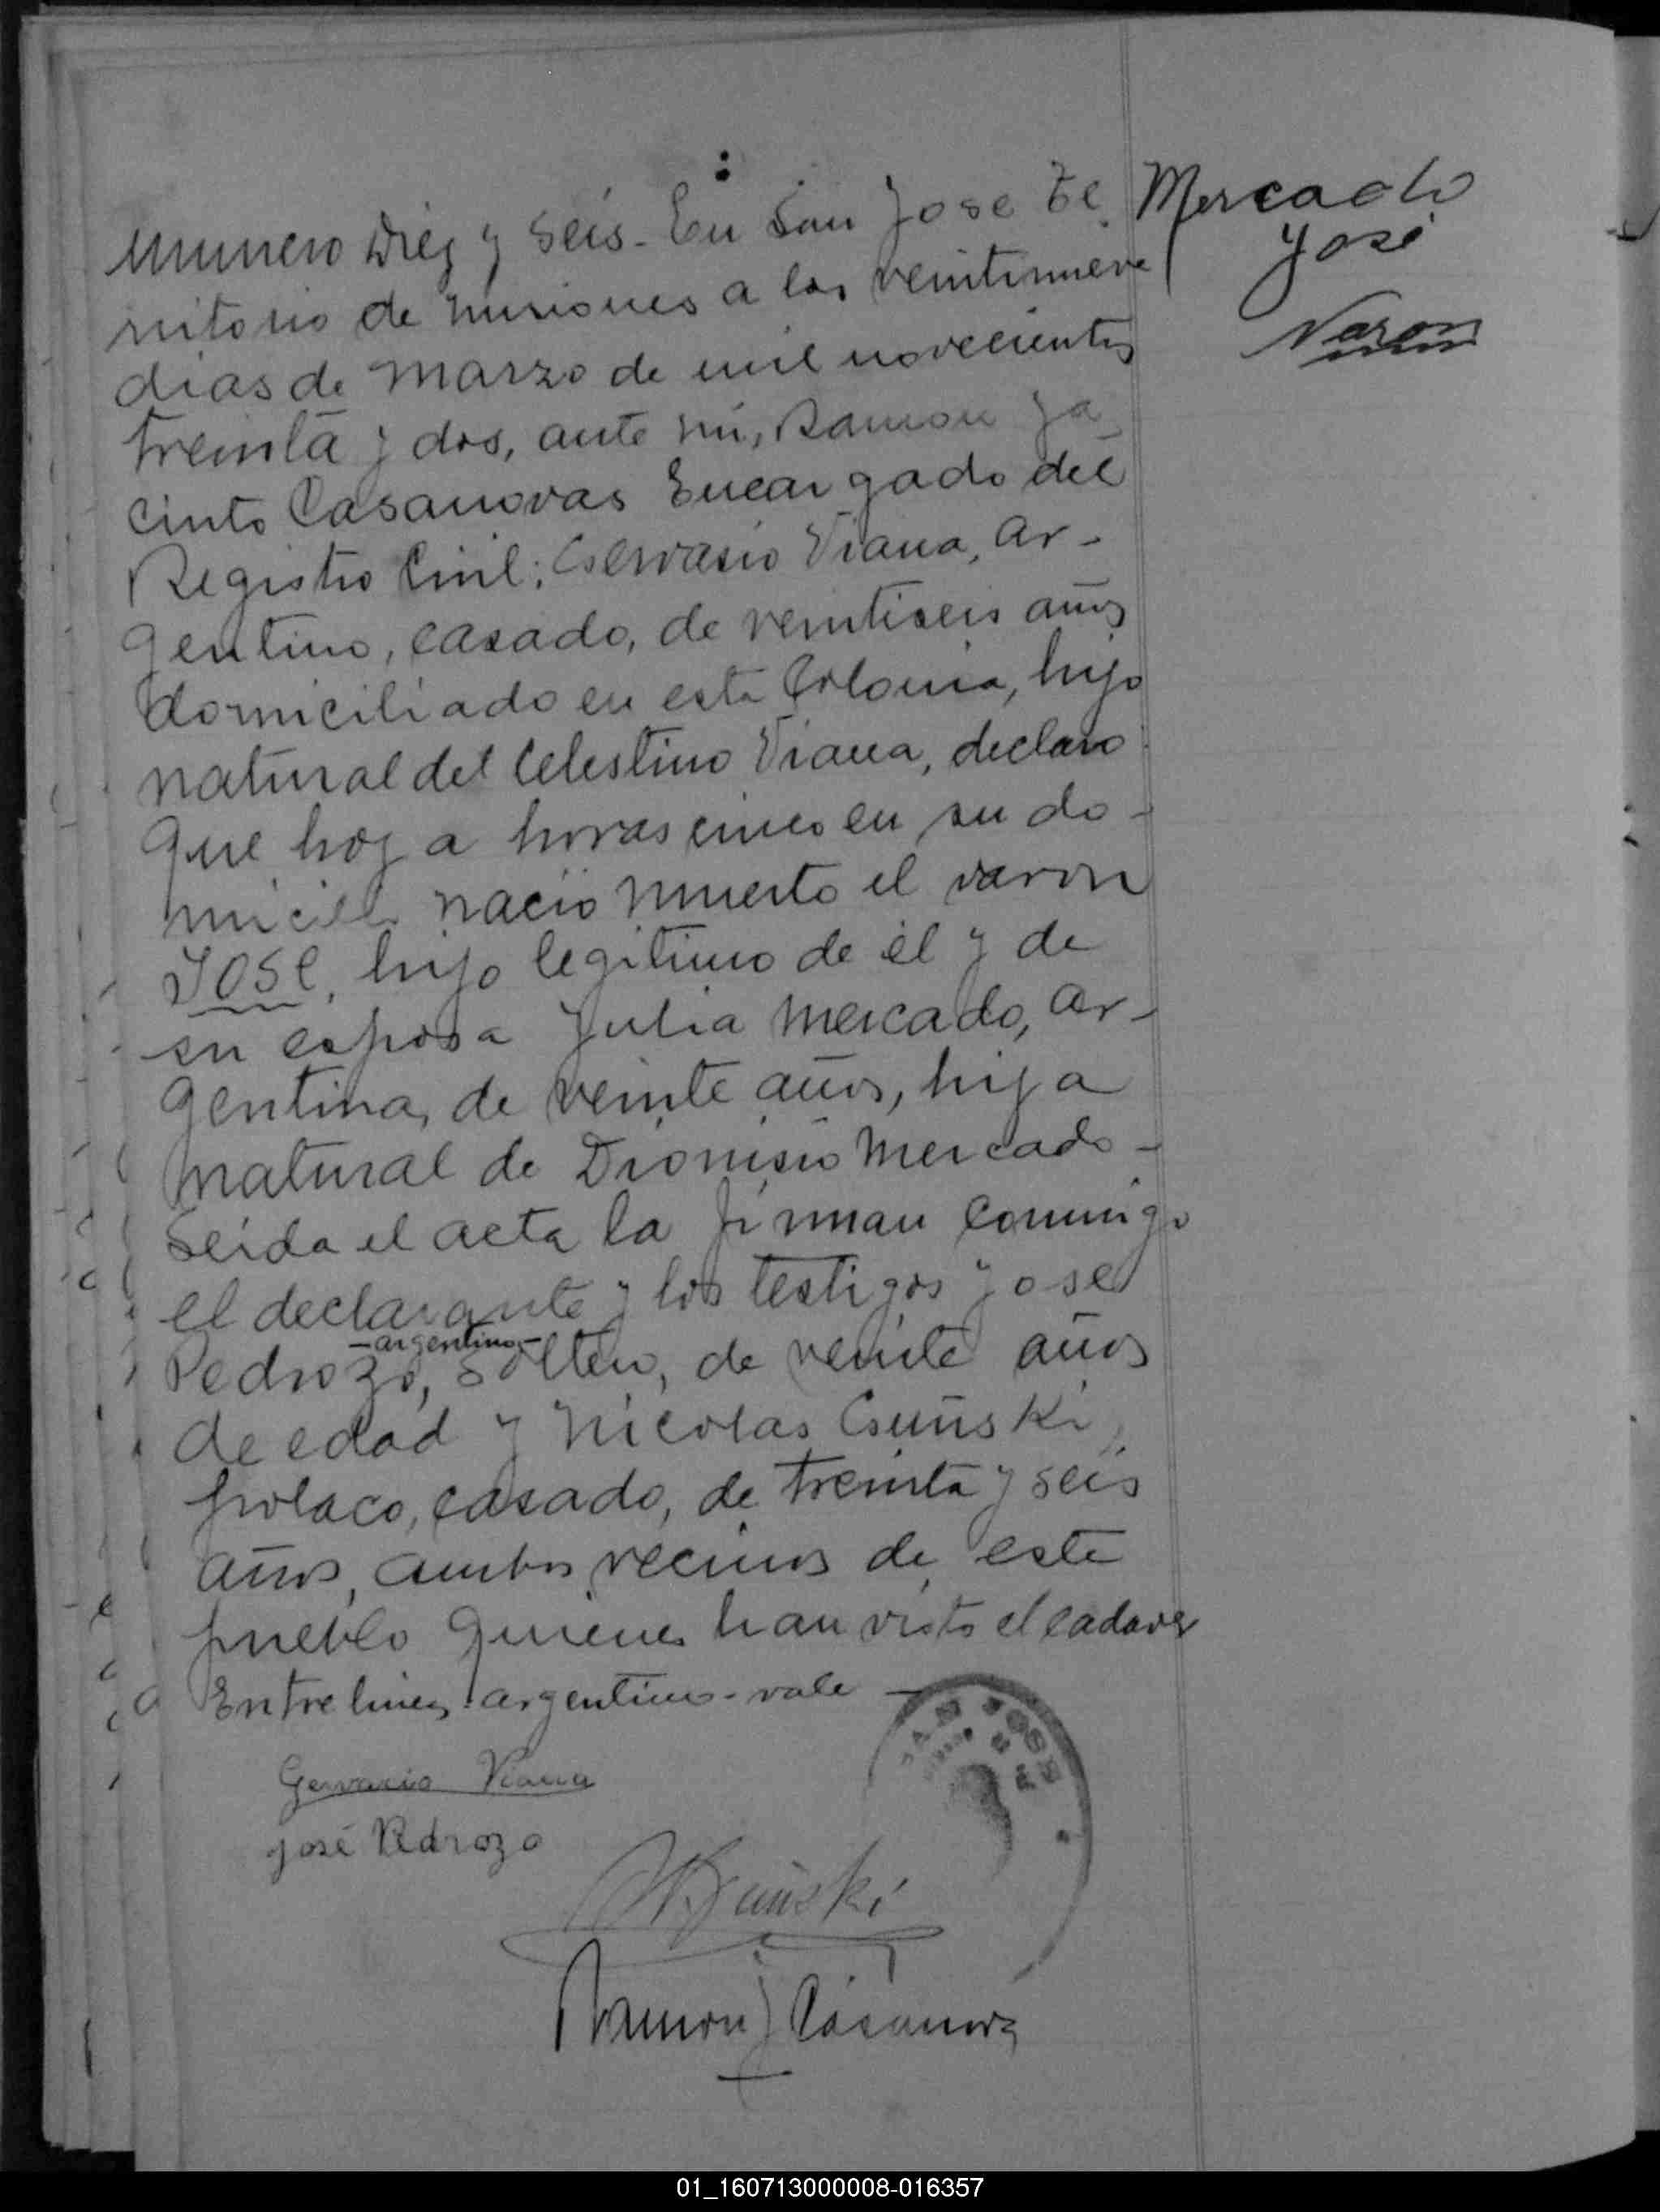 Numero Diez y Seis - En San Jose Te
rritorio de Misiones a los veintinueve
dias de Marzo de mil novecientos
treinta y dos, ante mi, Ramon Ja
cinto Casanovas Encargado del
Registro Civil; Gervasio Viana, ar-
gentino, casado, de veintiseis años
domiciliado en esta Colonia, hijo
natural del Celestino Viana, declaro
que hoy a horas cinco en su do-
micilio nacio muerto el varon
JOSE, hijo legitimo de él y de
su esposa Julia Mercado, ar-
gentina, de veinte años, hija
natural de Dionisio Mercado -
Leida el acta la firman conmigo
el declarante y los testigos Jose
- argentino -
Pedrozo, soltero, de veinte años
de edad y Nicolas
polaco, casado, de treinta y seis
años, ambos vecinos de este
pueblo quienes han visto el cadaver
Entre lineas: argentino - vale -
Mercado
José
Varon
SAN JOSE
Gervacio Viana
José Pedrozo
Ramon J Casanovas
01_160713000008-016357